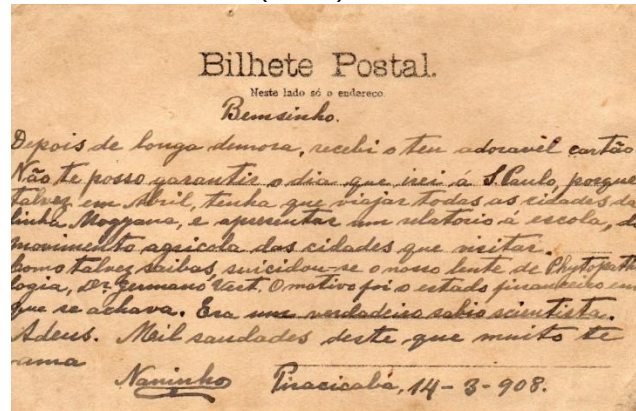 Bilhete Postal.
Neste lado só o endereco
Bemsinho.
Depois de longa demora, recebi o teu adoravél cartão
Não te posso garantir o dia que irei á S. Paulo, porque
talvez em Abril, tenha que viajar todas as cidades da
linha Mogyana, e apresentar um relatorio á escola, do
movimento agricola das cidades que visitar.
Como talvez saibas, suicidou-se o nosso lente de Phytopatho
logia, Dr. Germano O motivo foi o estado financeiro em
que se achava. Era um verdadeiro sabio scientista.
Adeus. Mil saudades deste que muito te
ama
Naninho Piracicaba, 14-3-908.